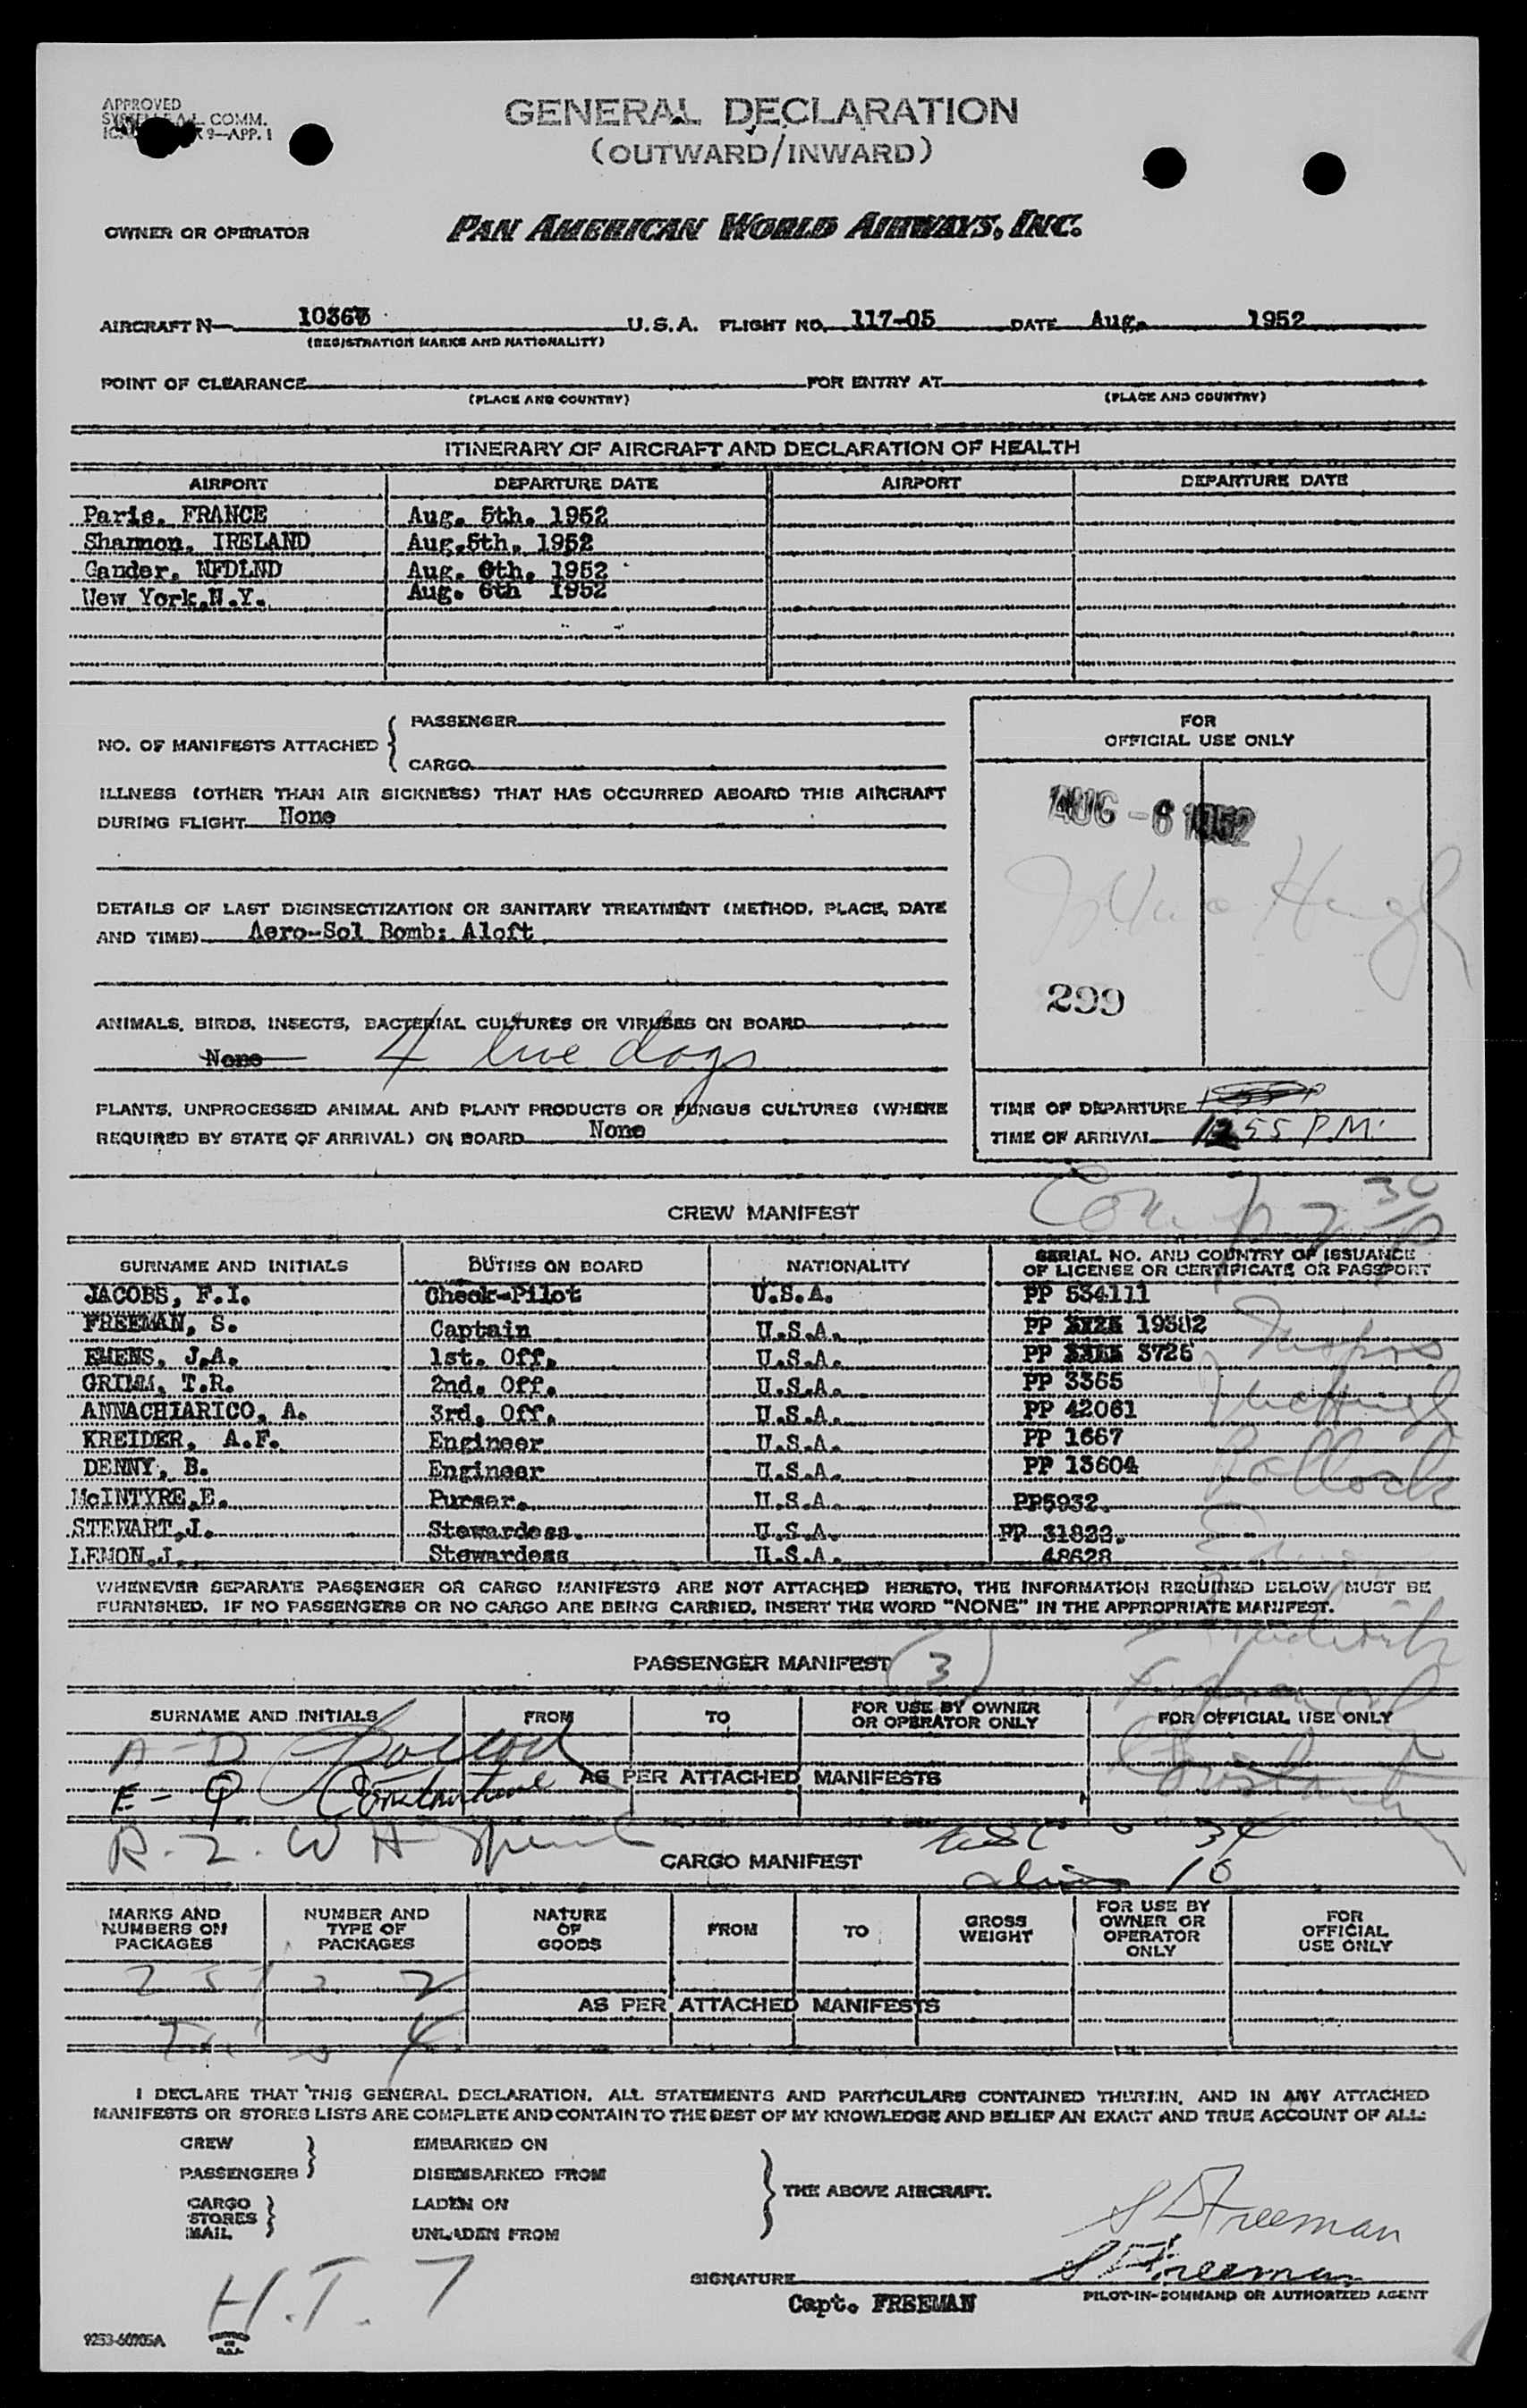 APPROVED
COMM.
9—APP. 1
GENERAL DECLARATION
(OUTWARD/INWARD)
OWNER OR OPERATOR PAN AMERICAN WORLD AIRWAYS, INC.
AIRCRAFT N— U.S.A. FLIGHT NO. 117-05 DATE Aug. 1952
(REGISTRATION MARKS AND NATIONALITY)
POINT OF CLEARANCE FOR ENTRY AT
(PLACE AND COUNTRY) (PLACE AND COUNTRY)
ITINERARY OF AIRCRAFT AND DECLARATION OF HEALTH
AIRPORT DEPARTURE DATE AIRPORT DEPARTURE DATE
Paris. FRANCE Aug. 5th. 1952
Shannon. IRELAND Aug.5th. 1952
Gander. NFDLND Aug. 6th. 1952
New York.N.Y. Aug. 6th 1952
NO. OF MANIFESTS ATTACHED { PASSENGER
CARGO
ILLNESS (OTHER THAN AIR SICKNESS) THAT HAS OCCURRED ABOARD THIS AIRCRAFT
DURING FLIGHT None
DETAILS OF LAST DISINSECTIZATION OR SANITARY TREATMENT (METHOD, PLACE, DATE
AND TIME) Aero-Sol Bomb: Aloft
ANIMALS, BIRDS, INSECTS, BACTERIAL CULTURES OR VIRUSES ON BOARD
None 4 live dogs
PLANTS, UNPROCESSED ANIMAL AND PLANT PRODUCTS OR FUNGUS CULTURES (WHERE
REQUIRED BY STATE OF ARRIVAL) ON BOARD None
FOR
OFFICIAL USE ONLY
AUG -6 1952
299
TIME OF DEPARTURE
TIME OF ARRIVAL 1255 P.M.
CREW MANIFEST
SURNAME AND INITIALS DUTIES ON BOARD NATIONALITY SERIAL NO. AND COUNTRY OF ISSUANCE
OF LICENSE OR CERTIFICATE OR PASSPORT
JACOBS, F.I. Check-Pilot U.S.A. PP 534111
FREEMAN, S. Captain U.S.A. PP 19382
EMENS, J.A. 1st. Off. U.S.A. PP 3725
GRIMM, T.R. 2nd. Off. U.S.A. PP 3365
ANNACHIARICO, A. 3rd. Off. U.S.A. PP 42061
KREIDER, A.F. Engineer U.S.A. PP 1667
DENNY, B. Engineer U.S.A. PP 13604
McINTYRE,E. Purser. U.S.A. PP5932.
STEWART,J. Stewardess. U.S.A. PP 31823.
LEMON,J. Stewardess U.S.A. 48628
WHENEVER SEPARATE PASSENGER OR CARGO MANIFESTS ARE NOT ATTACHED HERETO, THE INFORMATION REQUIRED BELOW MUST BE
FURNISHED. IF NO PASSENGERS OR NO CARGO ARE BEING CARRIED, INSERT THE WORD "NONE" IN THE APPROPRIATE MANIFEST.
PASSENGER MANIFEST (3)
SURNAME AND INITIALS FROM TO FOR USE BY OWNER
OR OPERATOR ONLY FOR OFFICIAL USE ONLY
AS PER ATTACHED MANIFESTS
CARGO MANIFEST
MARKS AND
NUMBERS ON
PACKAGES
NUMBER AND
TYPE OF
PACKAGES
NATURE
OF
GOODS
FROM TO
GROSS
WEIGHT
FOR USE BY
OWNER OR
OPERATOR
ONLY
FOR
OFFICIAL
USE ONLY
AS PER ATTACHED MANIFESTS
I DECLARE THAT THIS GENERAL DECLARATION, ALL STATEMENTS AND PARTICULARS CONTAINED THEREIN, AND IN ANY ATTACHED
MANIFESTS OR STORES LISTS ARE COMPLETE AND CONTAIN TO THE BEST OF MY KNOWLEDGE AND BELIEF AN EXACT AND TRUE ACCOUNT OF ALL:
CREW EMBARKED ON
PASSENGERS DISEMBARKED FROM
THE ABOVE AIRCRAFT.
CARGO LADEN ON
STORES
MAIL UNLADEN FROM
S Freeman
H.T. 7
SIGNATURE S Freeman
Capt. FREEMAN PILOT-IN-COMMAND OR AUTHORIZED AGENT
9253-60905A